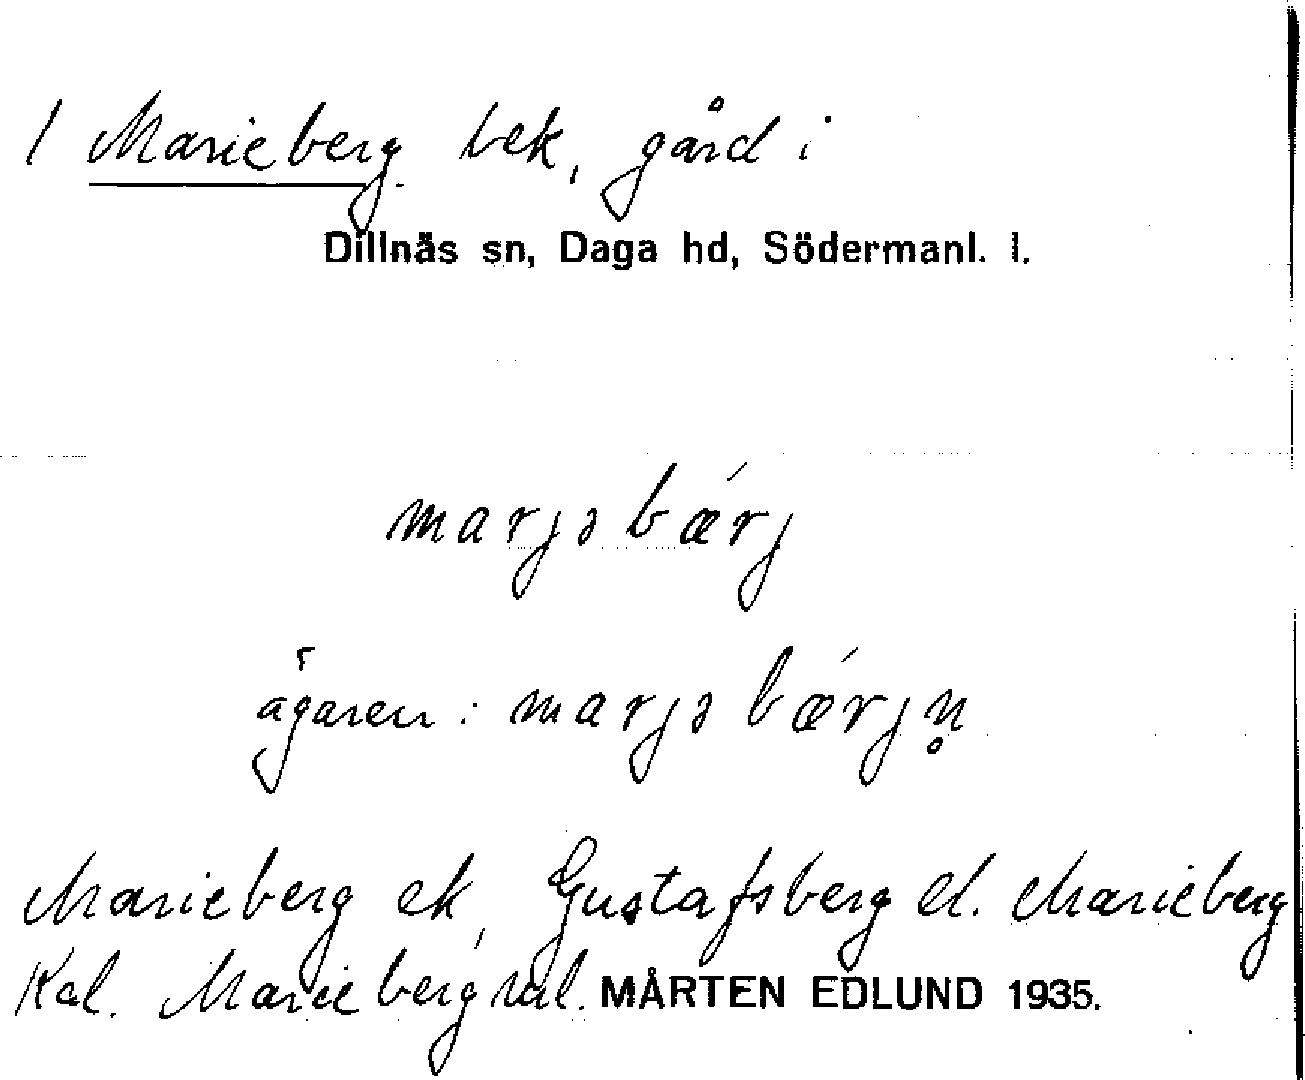 / Marieberg bek, gård i
Dillnäs sn, Daga hd, Södermanl. l.
marjəbærj
ägaren: marjəbærjn̥
Marieberg ek, Gustafsberg el. Marieberg
Kal. Marieberg
MÅRTEN EDLUND 1935.